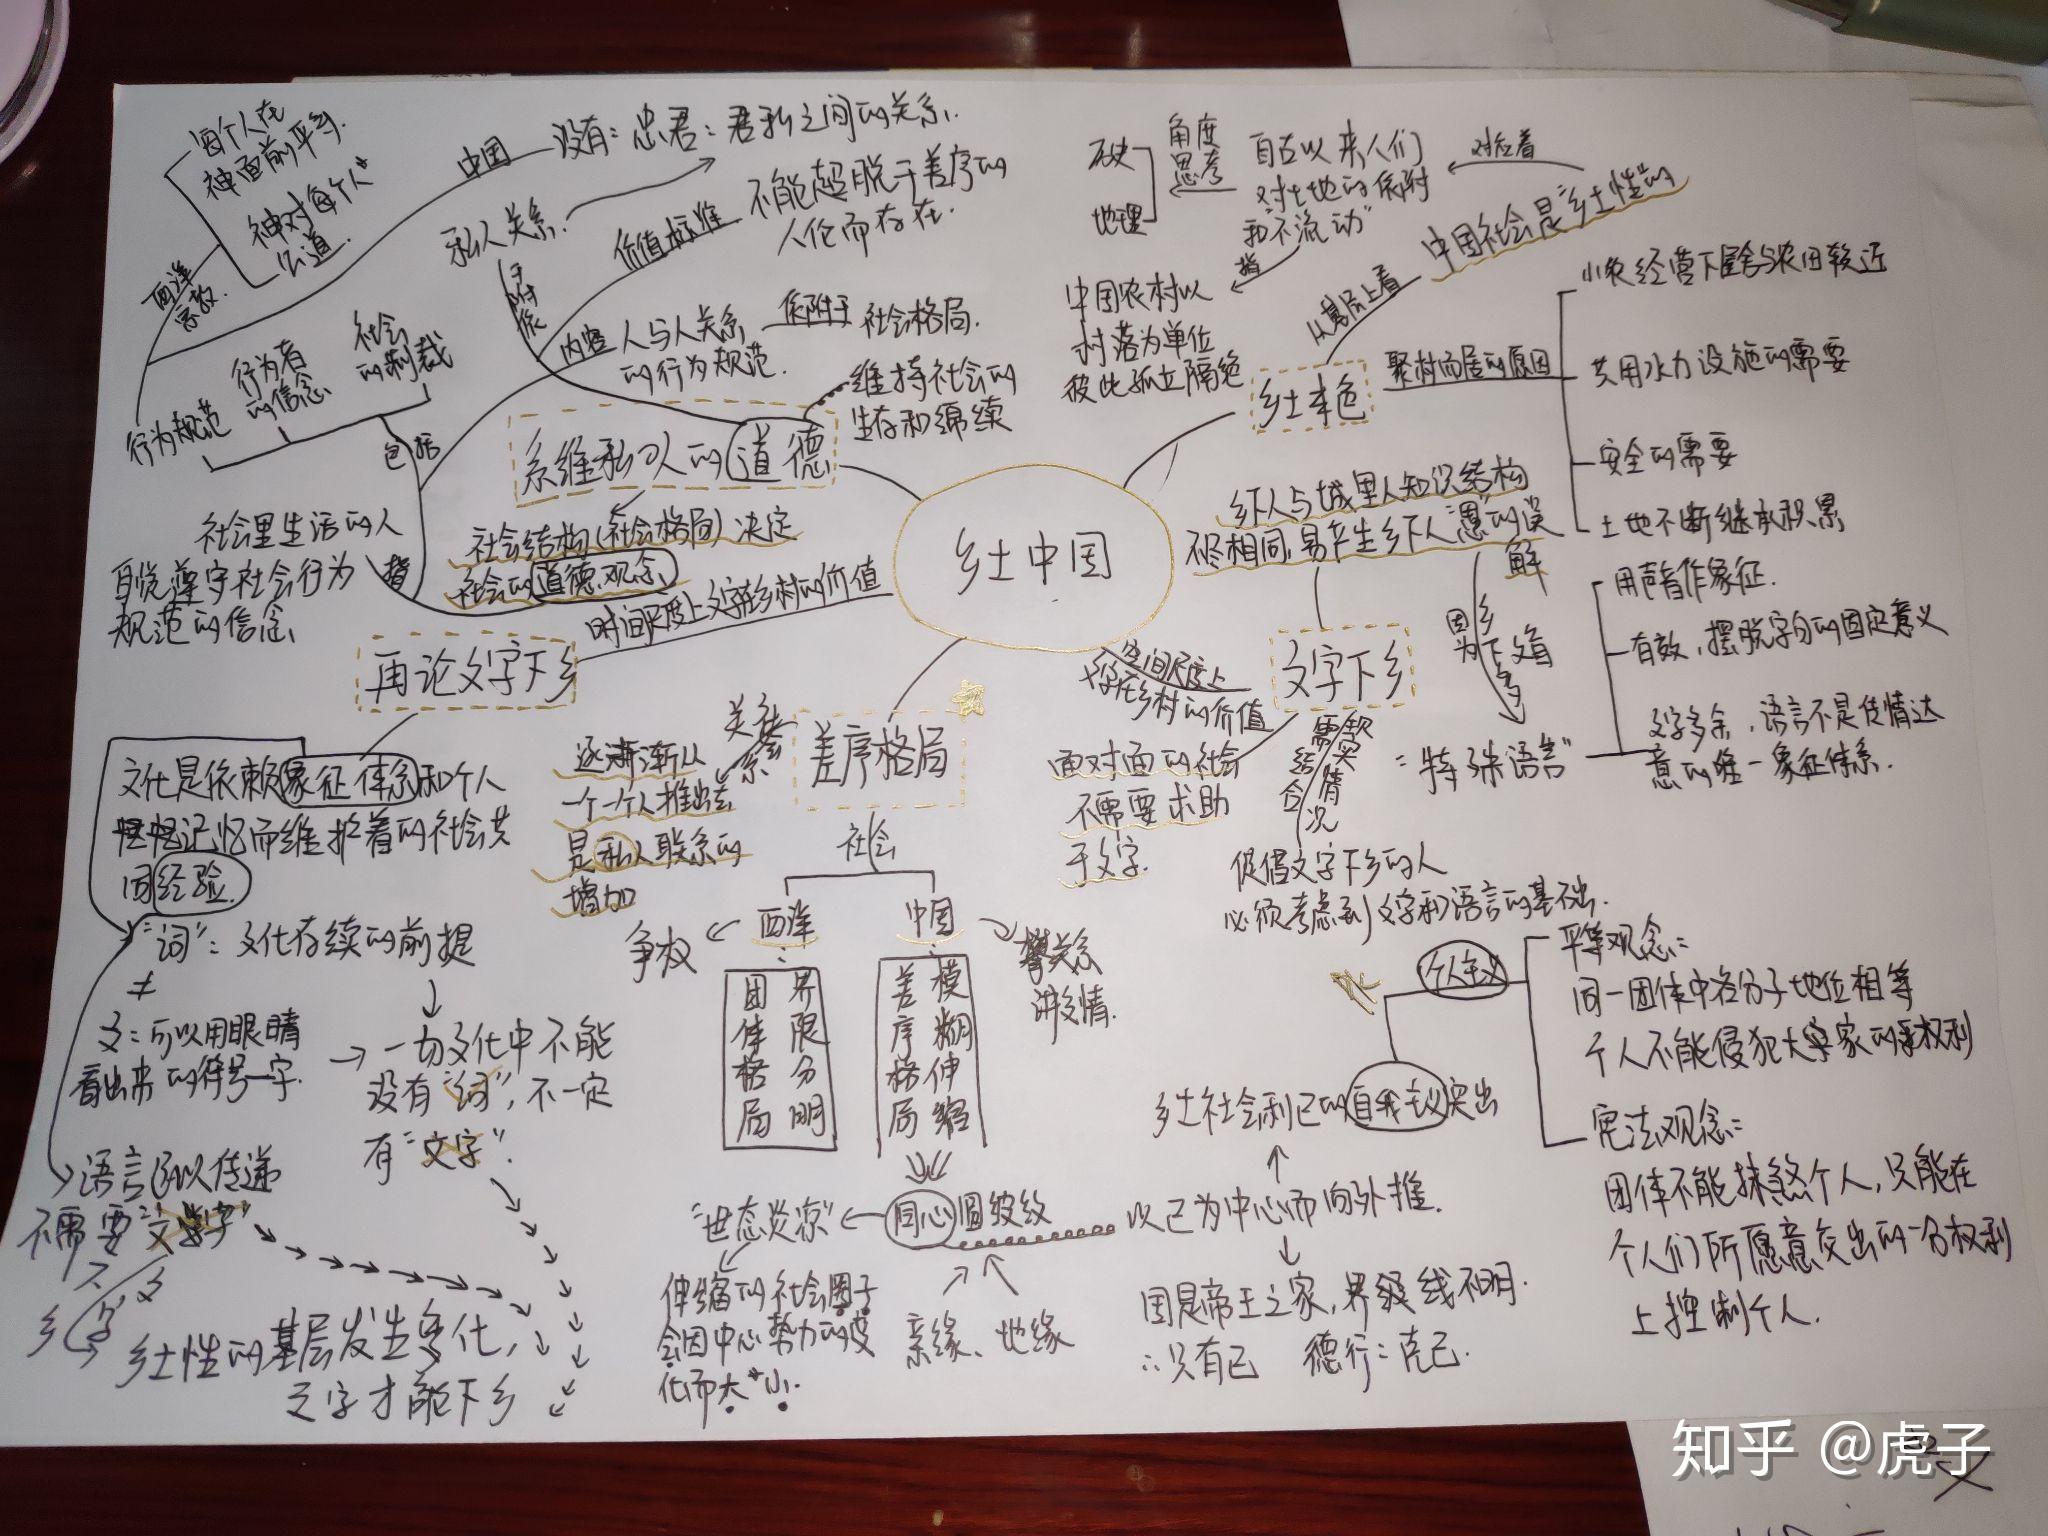 乡土中国
乡土本色
从基层上看
中国社会是“乡土性”的
对应着
自古以来人们
对土地的依附
和“不流动”
角度
思考
历史
地理
指
中国农村以
村落为单位
彼此孤立隔绝
聚村而居的原因
小农经营下屋舍与农田较近
共用水力设施的需要
安全的需要
土地不断继承积累
文字下乡
乡下人与城里人知识结构
不尽相同,易产生乡下人“愚”的误
解
因为
乡下文盲多
“特殊语言”
用声音作象征.
有效,摆脱字句的固定意义
文字多余,语言不是传情达
意的唯一象征体系.
空间尺度上
文字在乡村的价值
面对面的社会
不需要求助
于文字.
需结合
实情况
促倡文字下乡的人
必须考虑到文字和语言的基础.
差序格局
关系
社会
逐渐渐从
一个一个人推出去
是私人联系的
增加
社会
西洋
争权
团体格局
界限分明
中国
攀关系
讲交情.
差序格局
模糊伸缩
同心圆波纹
“世态炎凉”
伸缩的社会圈子
会因中心势力的变
化而大小.
亲缘、地缘
以己为中心而向外推.
国是帝王之家,界线不明.
∴只有己 德行:克己.
乡土社会利己的自我主义突出
个人主义
平等观念:
同一团体中各分子地位相等
个人不能侵犯大家的权利
宪法观念:
团体不能抹煞个人,只能在
个人们所愿意交出的一分权利
上控制个人.
再论文字下乡
时间尺度上文字在乡村的价值
文化是依赖象征体系和个人
记忆而维护着的社会共
同经验.
“词”:文化存续的前提
≠
文:可以用眼睛
看出来的符号—字.
一切文化中不能
没有“词”,不一定
有“文字”.
语言可以传递
不需要“文字”
乡土性的基层发生变化,
文字才能下乡
系维着私人的道德
维持社会的
生存和绵续
社会结构(社会格局)决定
社会的道德观念
指
社会里生活的人
自觉遵守社会行为
规范的信念
包括
行为规范
行为者
的信念
社会
的制裁
内容
人与人关系
的行为规范.
依附于
社会格局.
价值标准
不能超脱于差序的
人伦而存在.
私人关系.
中国
没有:忠君:君私之间的关系.
西洋
宗教.
每个人在
神面前平等.
神对每个人
公道.
知乎 @虎子